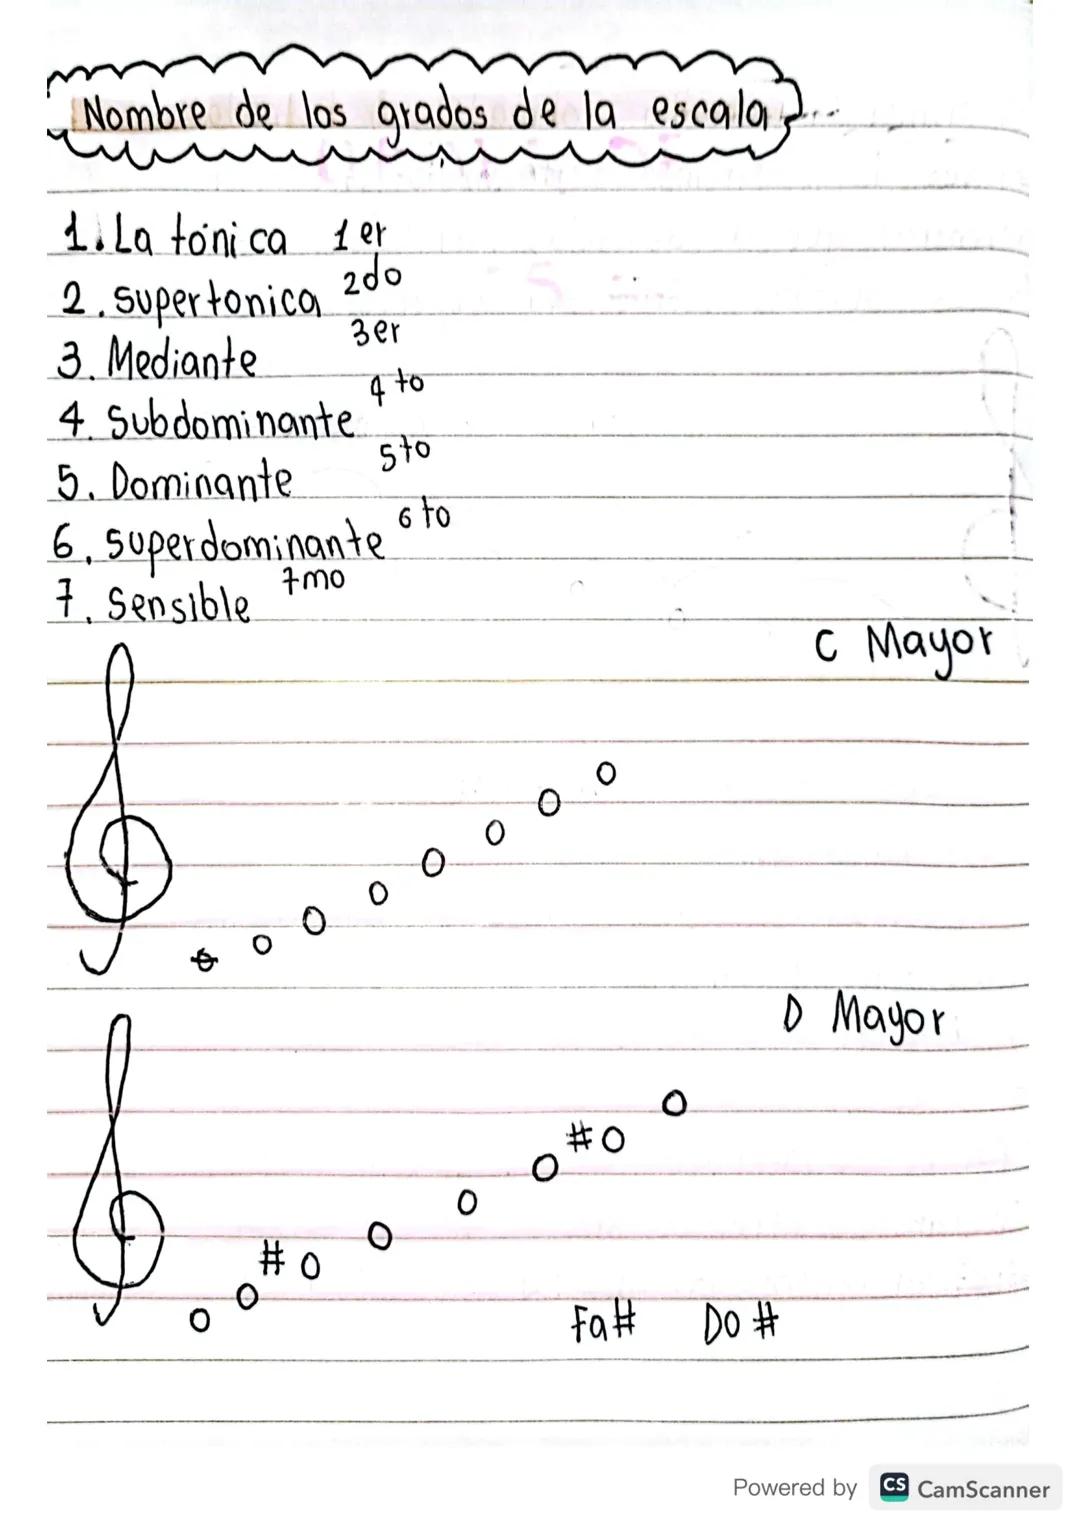 Nombre de los grados de la escala
1. La tónica 1er
2. supertonica 2do
3. Mediante 3er
4. Subdominante 4to
5. Dominante 5to
6. superdominante 6to
7. Sensible 7mo
C Mayor
D Mayor
#
#
Fa# Do #
Powered by CS CamScanner